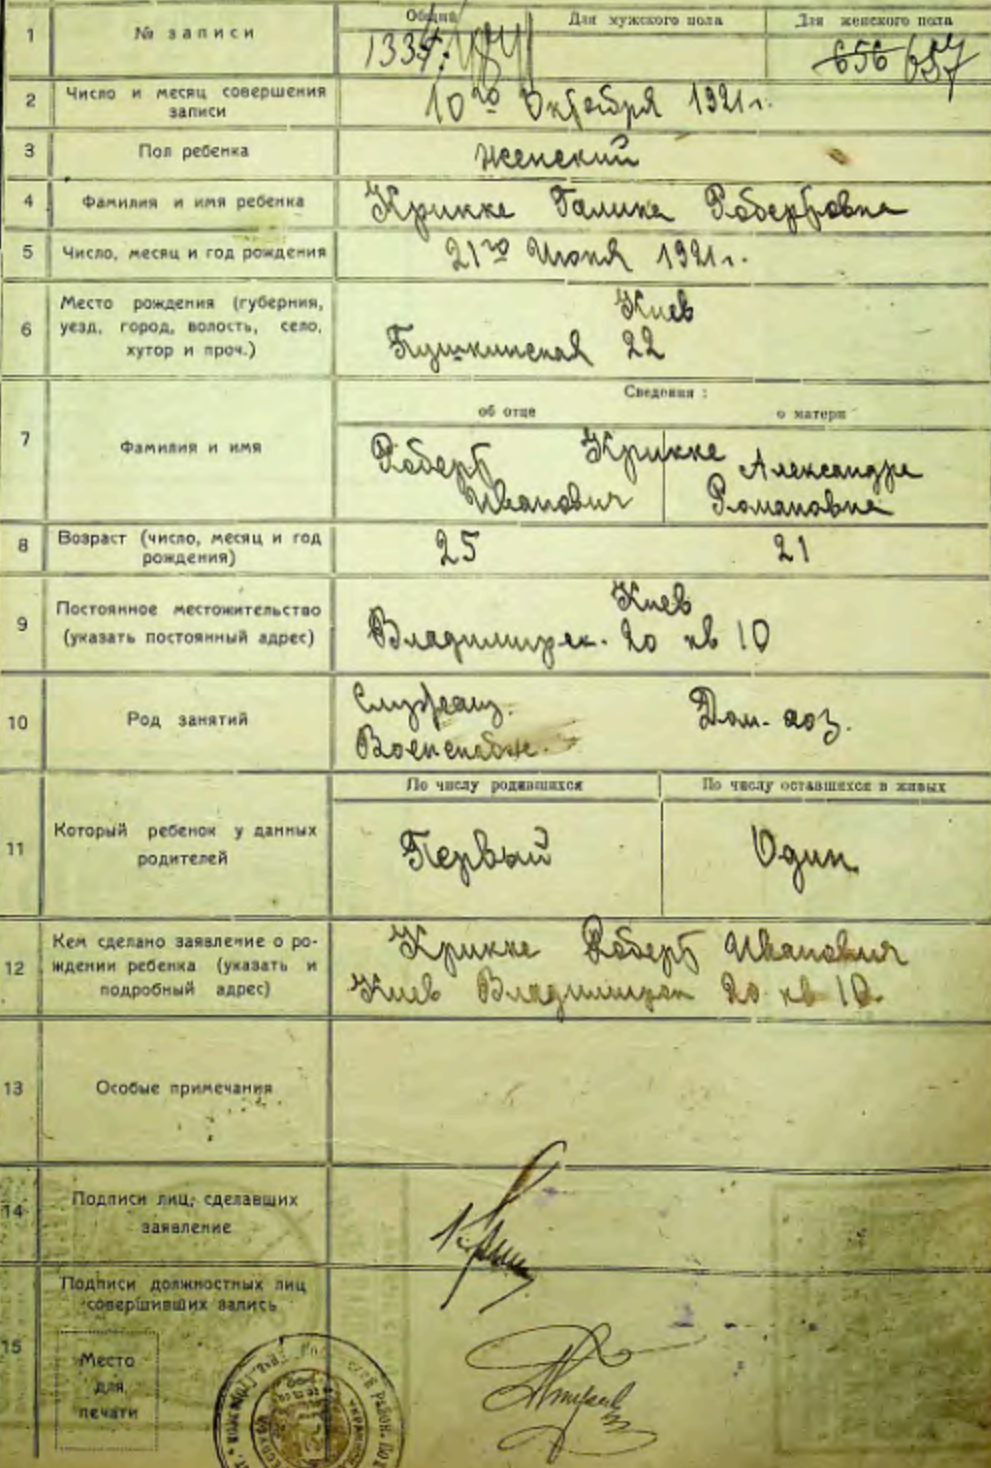 1
№ записи
Общий
Для мужского пола
Для женского пола
1334
656 657
2
Число и месяц совершения
записи
10го Октября 1921 г.
3
Пол ребенка
Женский
4
Фамилия и имя ребенка
Крикке Галина Робертовна
5
Число, месяц и год рождения
21го Июня 1921 г.
6
Место рождения (губерния,
уезд, город, волость, село,
хутор и проч.)
Киев
Пушкинская 22
7
Фамилия и имя
Сведения :
об отце
о матери
Крикке
Роберт
Иванович
Александра
Романовна
8
Возраст (число, месяц и год
рождения)
25
21
9
Постоянное местожительство
(указать постоянный адрес)
Киев
Владимирск. 20 кв 10
10
Род занятий
Служащ.
Дом. хоз.
11
Который ребенок у данных
родителей
По числу родившихся
По числу оставшихся в живых
Первый
Один
12
Кем сделано заявление о ро-
ждении ребенка (указать и
подробный адрес)
Крикке Роберт Иванович
Киев Владимирск 20 кв 10.
13
Особые примечания
14
Подписи лиц, сделавших
заявление
15
Подписи должностных лиц
совершивших запись
Место
для
печати